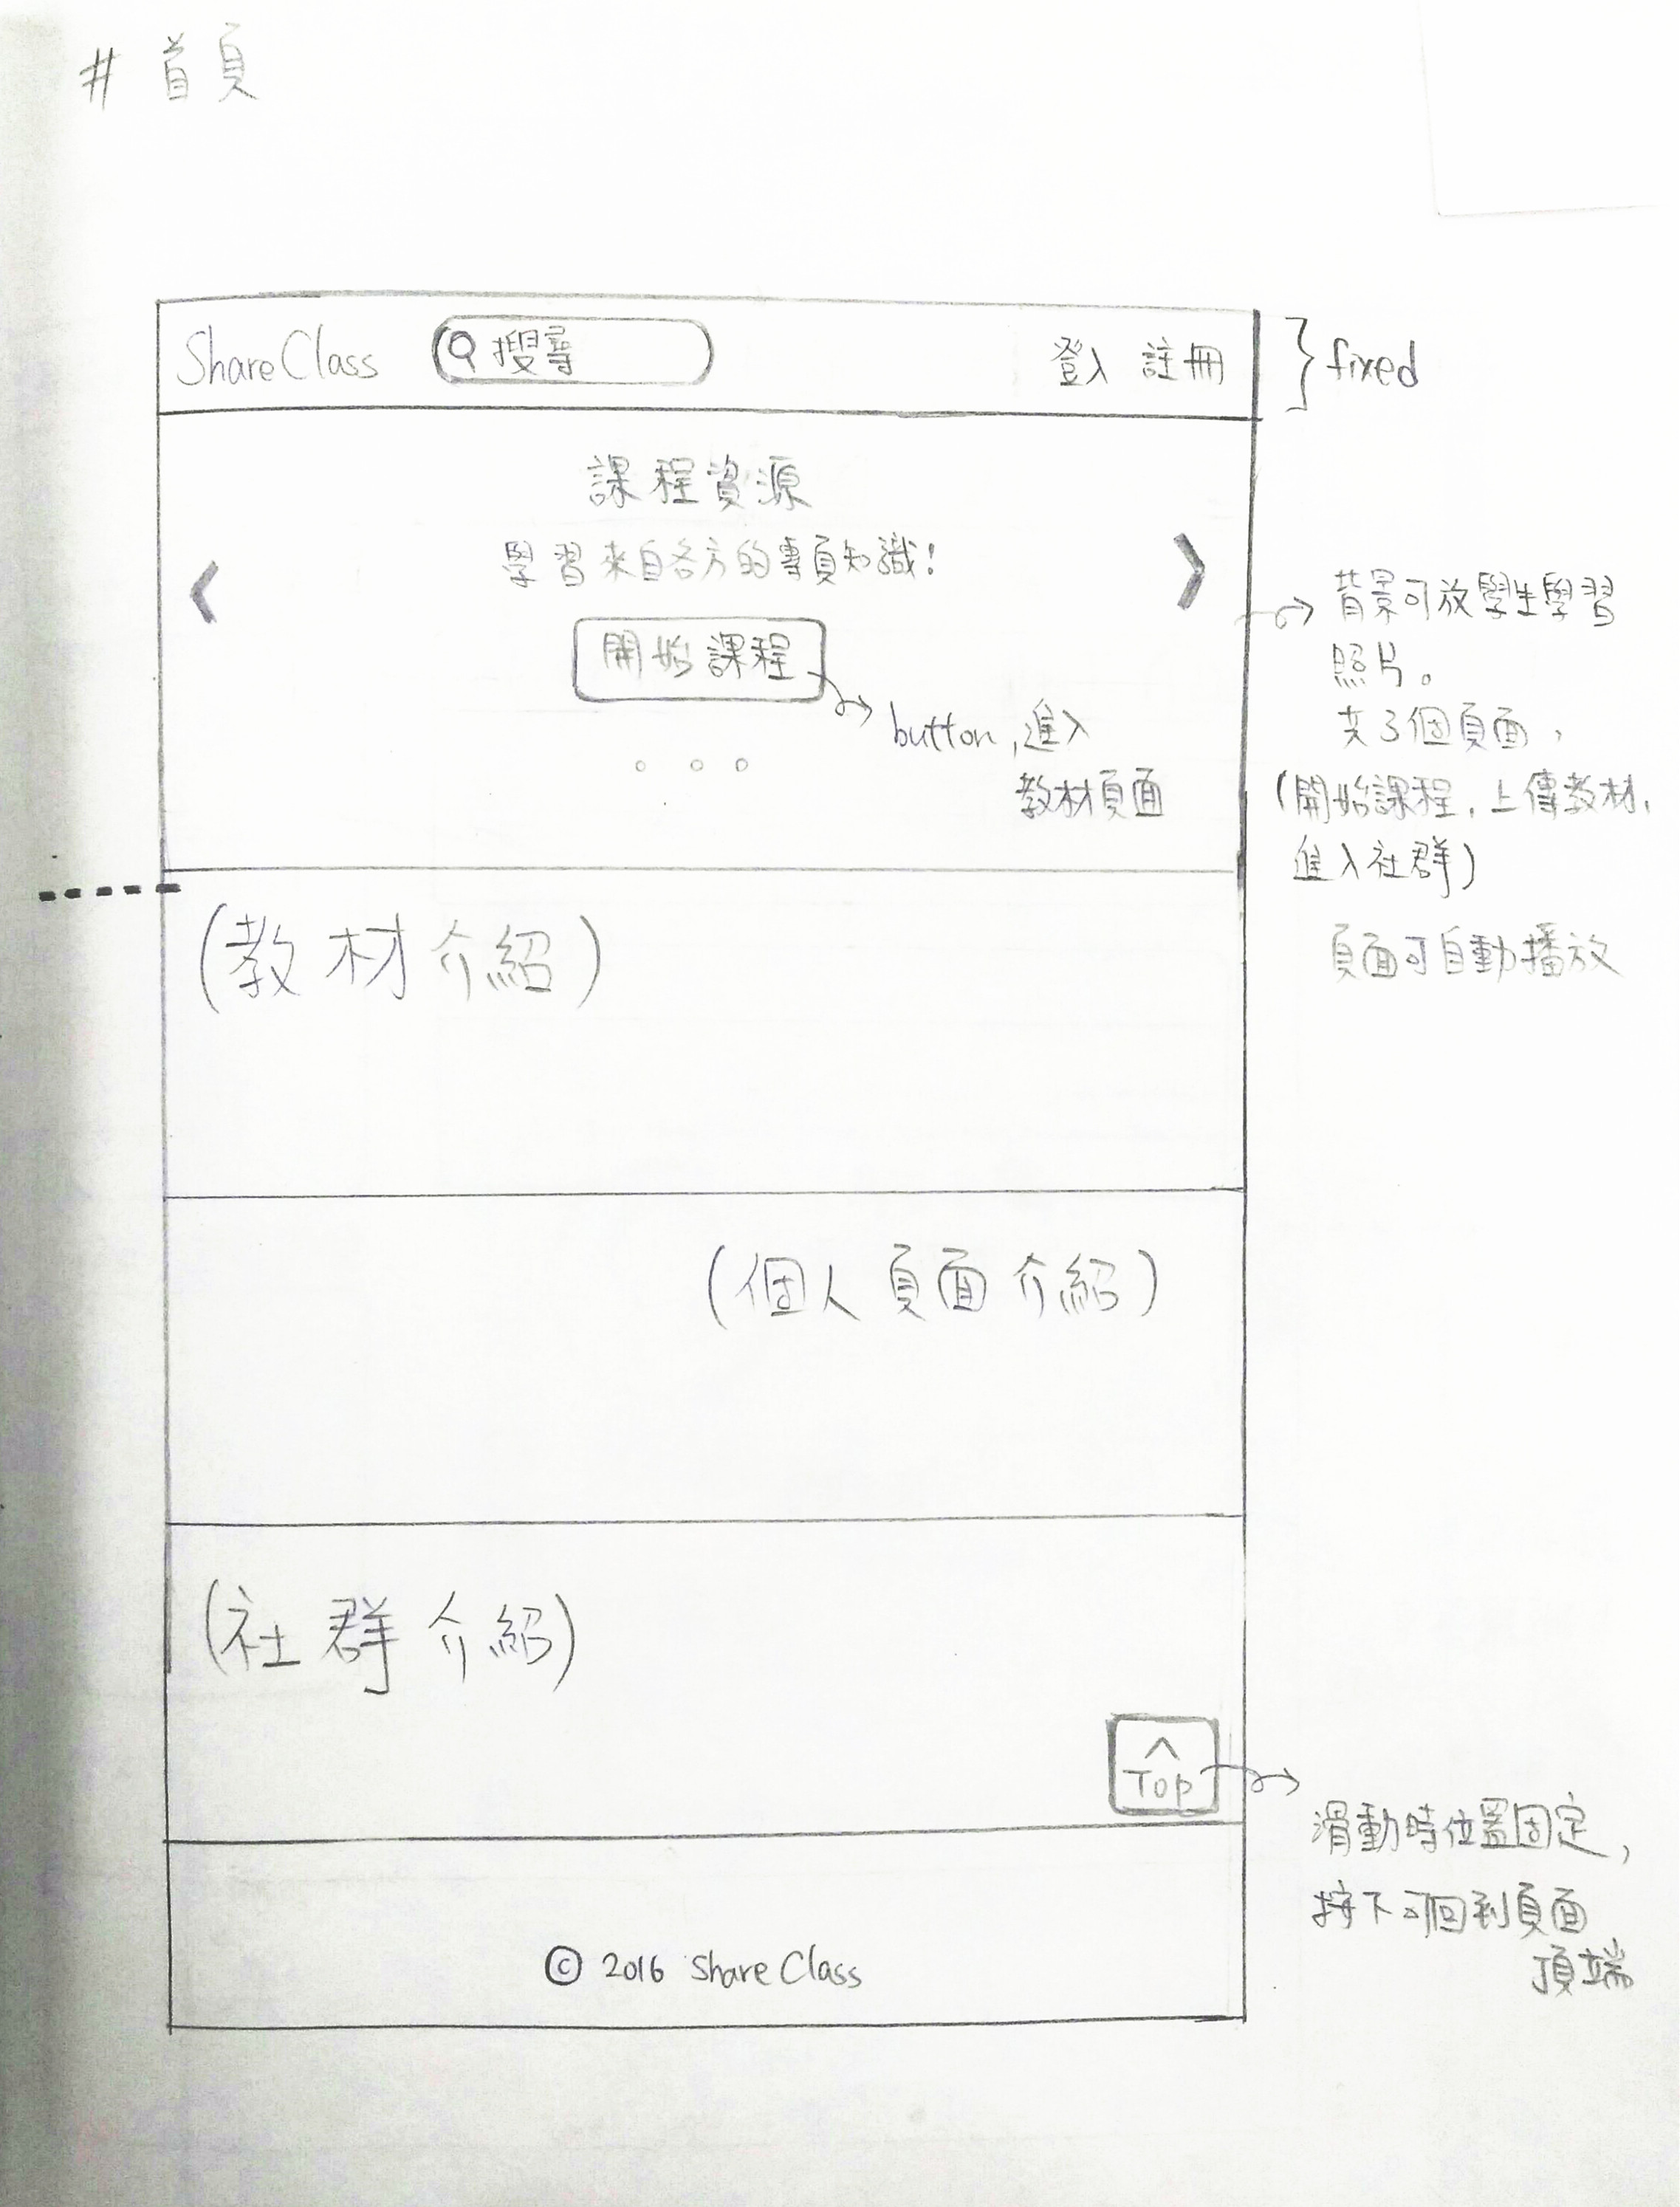 # 首頁
ShareClass 搜尋 登入 註冊
fixed
課程資源
學習來自各方的專頁知識!
開始課程
button, 進入
教材頁面
背景可放學生學習
照片。
共3個頁面,
(開始課程, 上傳教材,
進入社群)
頁面可自動播放
(教材介紹)
(個人頁面介紹)
(社群介紹)
Top
滑動時位置固定,
按下可回到頁面
頂端
© 2016 ShareClass